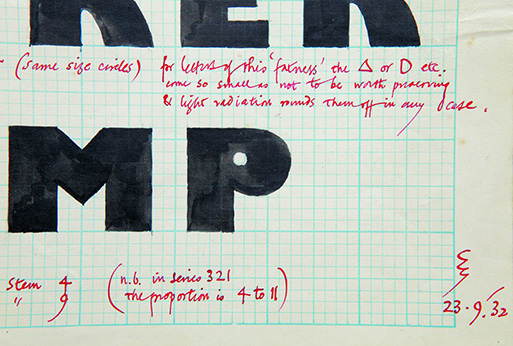 KER
(same size circles)
for letters of this 'fatness' the Δ or D etc.
come so small as not to be worth preserving
& light radiation rounds them off in any case.
MP
Stem 4
" 9
(n.b. in series 321
the proportion is 4 to 11)
23.9.'32